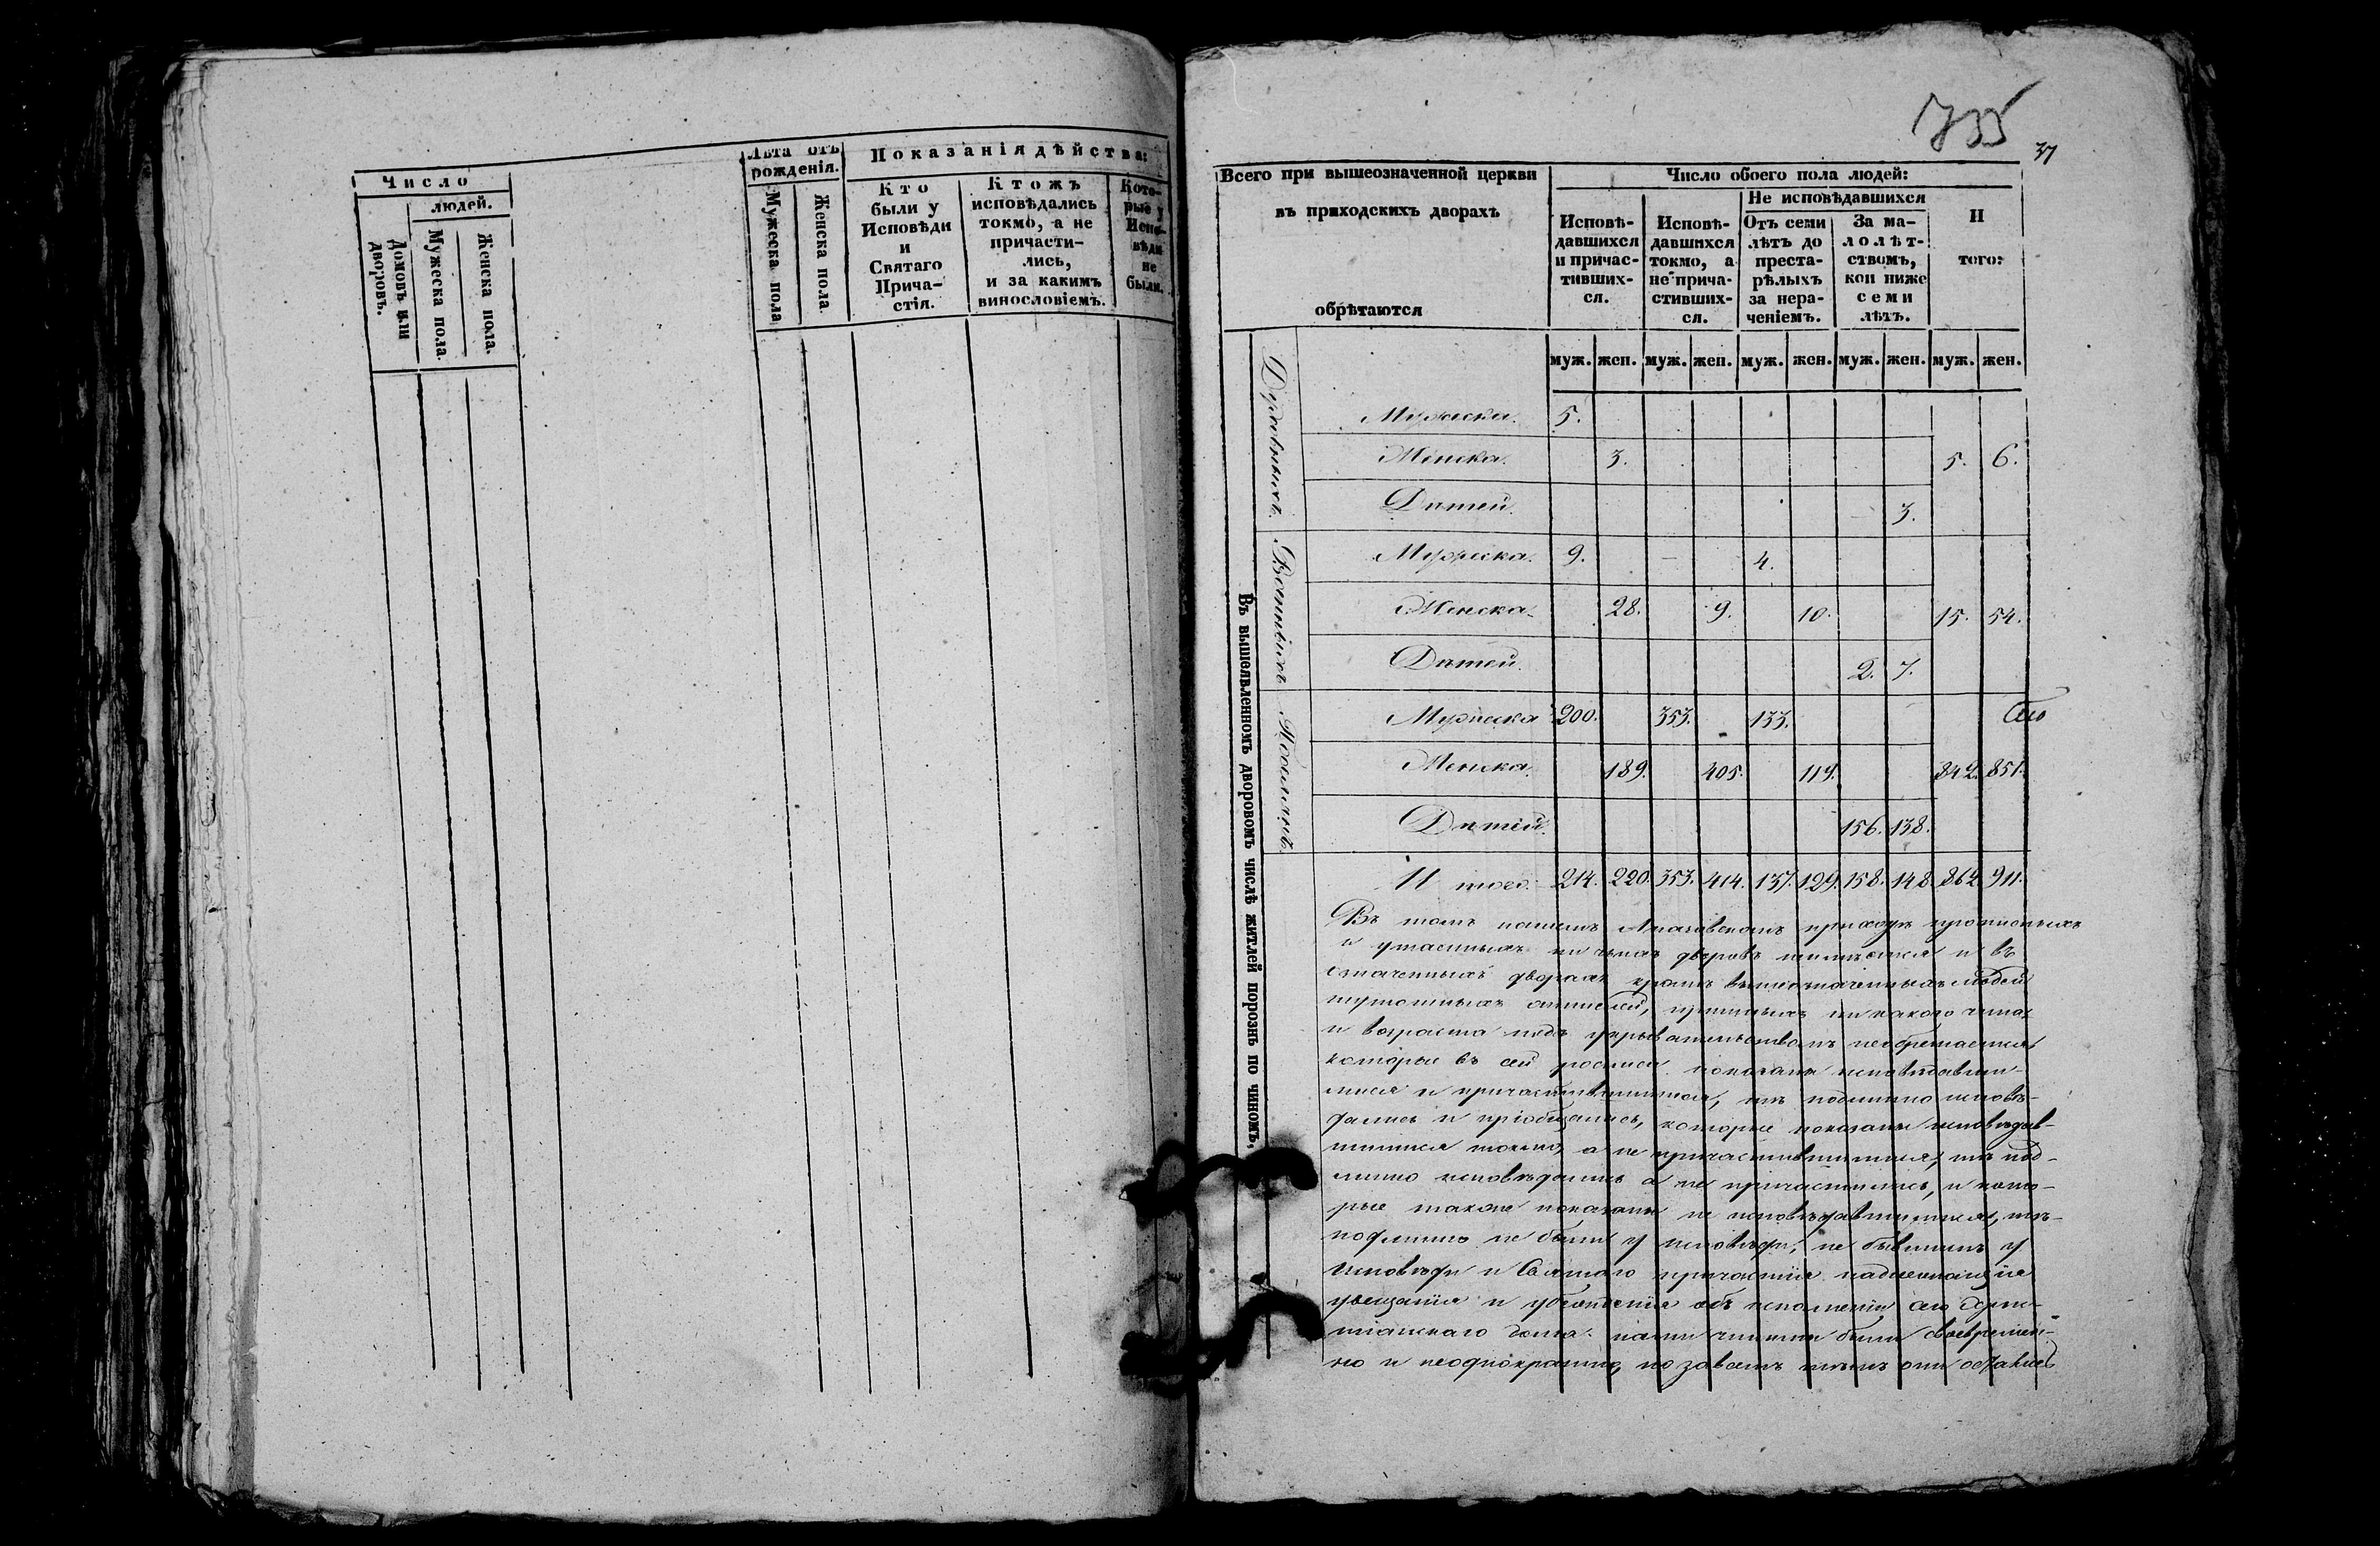 Число
людей.
Домовъ или дворовъ.
Мужеска пола.
Женска пола.
Лѣта отъ рожденія.
Мужеска пола
Женска пола.
Показанія дѣйства:
Кто
были у
Исповѣди
и
Святаго
Прича-
стія.
Ктожъ
исповѣдались
токмо, а не
причасти-
лись,
и за какимъ
винословіемъ.
Кото-
рые у
Испо-
вѣди
не
были.
735
37
Всего при вышеозначенной церкви
въ приходскихъ дворахъ
обрѣтаются
Число обоего пола людей:
Исповѣ-
давшихся
и причас-
тивших-
ся.
Исповѣ-
давшихся
токмо, а
не прича-
стивших-
ся.
Не исповѣдавшихся
Отъ семи
лѣтъ до
преста-
рѣлыхъ
за нера-
ченіемъ.
За ма-
лолѣт-
ствомъ,
кои ниже
семи
лѣтъ.
И
того:
муж. жен. муж. жен. муж. жен. муж. жен. муж. жен.
Въ вышеявленномъ дворовомъ числѣ житлей порознь по чиномъ,
Духовныхъ.
Мужеска. 5.
Женска. 3. 5. 6.
Дѣтей. 3.
Военныхъ
Мужеска. 9. — 4.
Женска. 28. 9. 10. 15. 54.
Дѣтей. 2. 7.
Мужеска 200. 353. 133.
Женска. 189. 405. 119. 842. 851.
Дѣтей. 156. 138.
Итого. 214. 220. 353. 414. 137. 129. 158. 148. 862. 911.
Въ томъ нашемъ приходѣ прописныхъ
и утаенныхъ ни чьихъ дворовъ неимѣется и въ
означенныхъ дворахъ кромѣ вышеозначенныхъ людей
ни какого чина
и возраста подъ укрывательствомъ необретается
которые въ сей росписи показаны исповѣдавши-
мися и причастившимися, тѣ подлинно исповѣ-
дались и пріобщались, которые показаны исповѣдав-
шимися токмо, а не причастившимися, тѣ под-
линно исповѣдались а не причастились, и кото-
рые также показаны не исповѣдавшимися, тѣ
подлинно не были у исповѣди, не бывшимъ у
исповѣди и Святаго причастія надлежащіе
увещанія и убежденія объ исполненіи сего Хрис-
тіанскаго долга нами чинимы были своевремен-
но и неоднократно, но за всѣмъ тѣмъ они остались